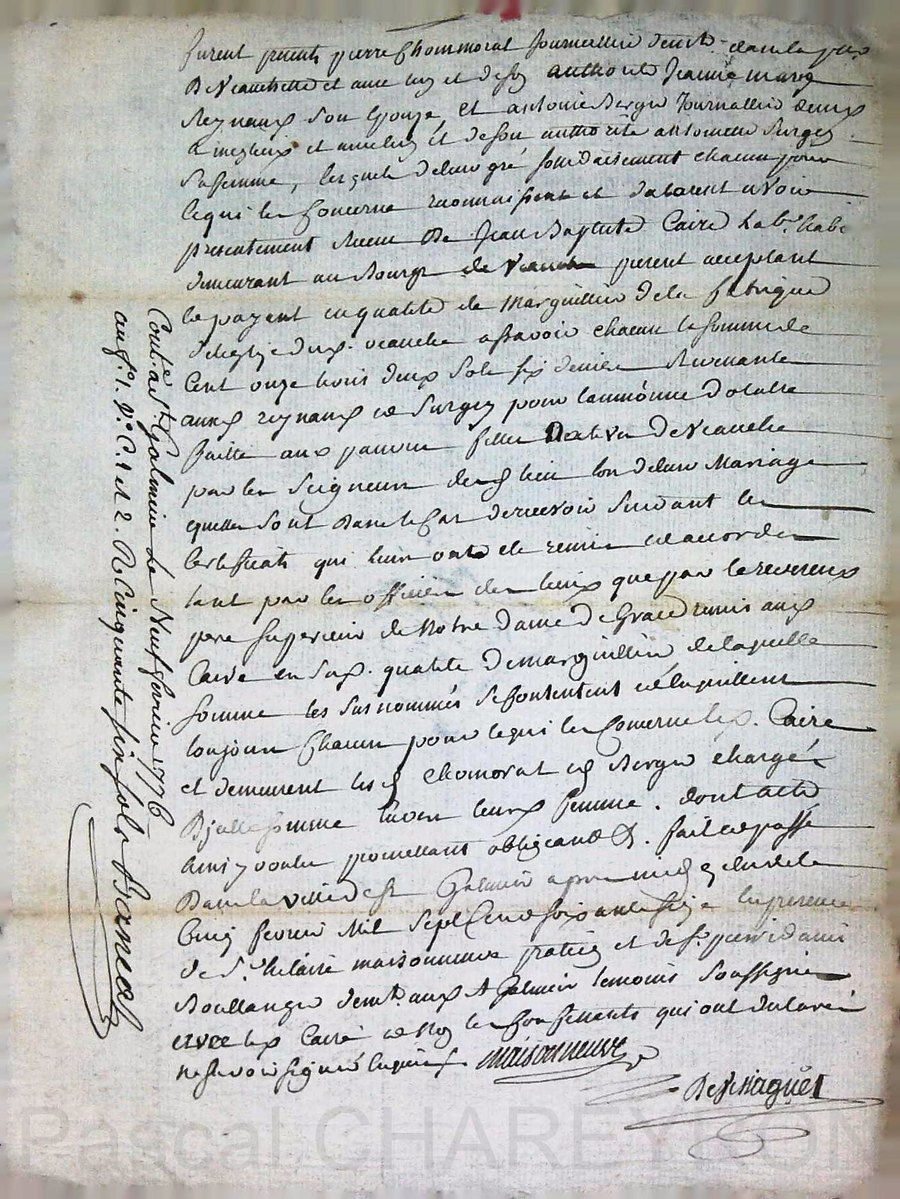 furent présents pierre Chommorat Journallier demt. dans la psse
De Veauchette et avec luy et de son authorité Jeanne marie
Reynaux Son Epouze, et antoine Berger Journallier demt.
a meylieu et avec luy et de Son authorité antoinette Surgey
Sa femme, lesquels de leur gré solidairement chacun pour
ce qui les Concerne reconnaissent et declarent avoir
presentement Receu De Jean Baptiste Caire Lab.r hab.t
demeurant au Bourg de Veauche present acceptant
le payant en qualité de Marguillier de la fabrique
d'eglize dud. veauche assavoir chacun la somme de
Cent onze livres deux Sols six deniers Revenante
auxd. reynaux et Surgey pour l'aumône dotalle
faitte aux pauvres filles Natives de Veauche
par les Seigneurs dud. lieu lors de leur Mariage
quelles sont Dans le Cas de recevoir suivant les
Certificats qui leurs ont été remis et accordés
tant par les officiers des lieux que par le reverend
pere Superieur de Notre Dame de Grace remis aud.
Caire en Sad. qualité de marguillier de laquelle
somme les sus nommés se Contentent et en quittent
toujours Chacun pour ce qui les Concerne led. Caire
et demeurent lesd. Chomorat et Berger chargés
D'icelle somme envers leurs femme. dont acte
ainsi voulu promettant obligeant &. fait et passé
Dans la ville de St. Galmier apres midy du
Cinq fevrier Mil Sept Cent soixante seize En presence
de S.r hilaire maisonneuve praticien et de S.r pierre
Boullanger demt. aud. St Galmier temoins Soussignés
avec led. Caire et Non les Confessants qui ont declaré
ne scavoir signer Enquis
maisonneuve
Contlé a St. Galmier Le Neuf fevrier 1776
au f.o 1. V.o C. 1 et 2. R. Cinquante six sols